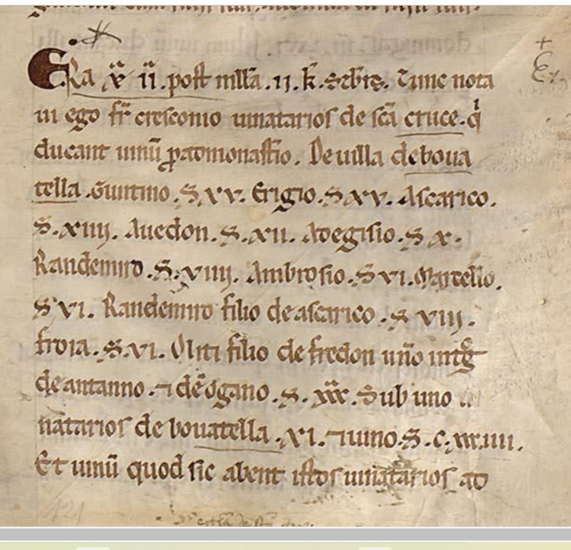 Era x̄ ii. post milla .ii. k̄. setb̄rs. Tunc nota
ui ego fr̄ cresconio uinatarios de scā cruce. q̄
ducant uinū pad monast̄io. De uilla de boua
tella. Guntino. S. xv. Erigio. S. xv. Ascarico.
S. xiiii. Auedon. S. xii. Adegisio. S x.
Randemiro. S. viiii. Ambrosio. S vi. Martello.
S vi. Randemiro filio de ascarico. S viii.
froia. S. vi. Oliti filio de fredon uno intḡ
de antanno. ⁊ de ogano. S. xxx. Sub uno
natarios de bouatella. xi. ⁊ uino. S. c. xxiiii.
Et uinū quod sic abent istos uinatarios ad